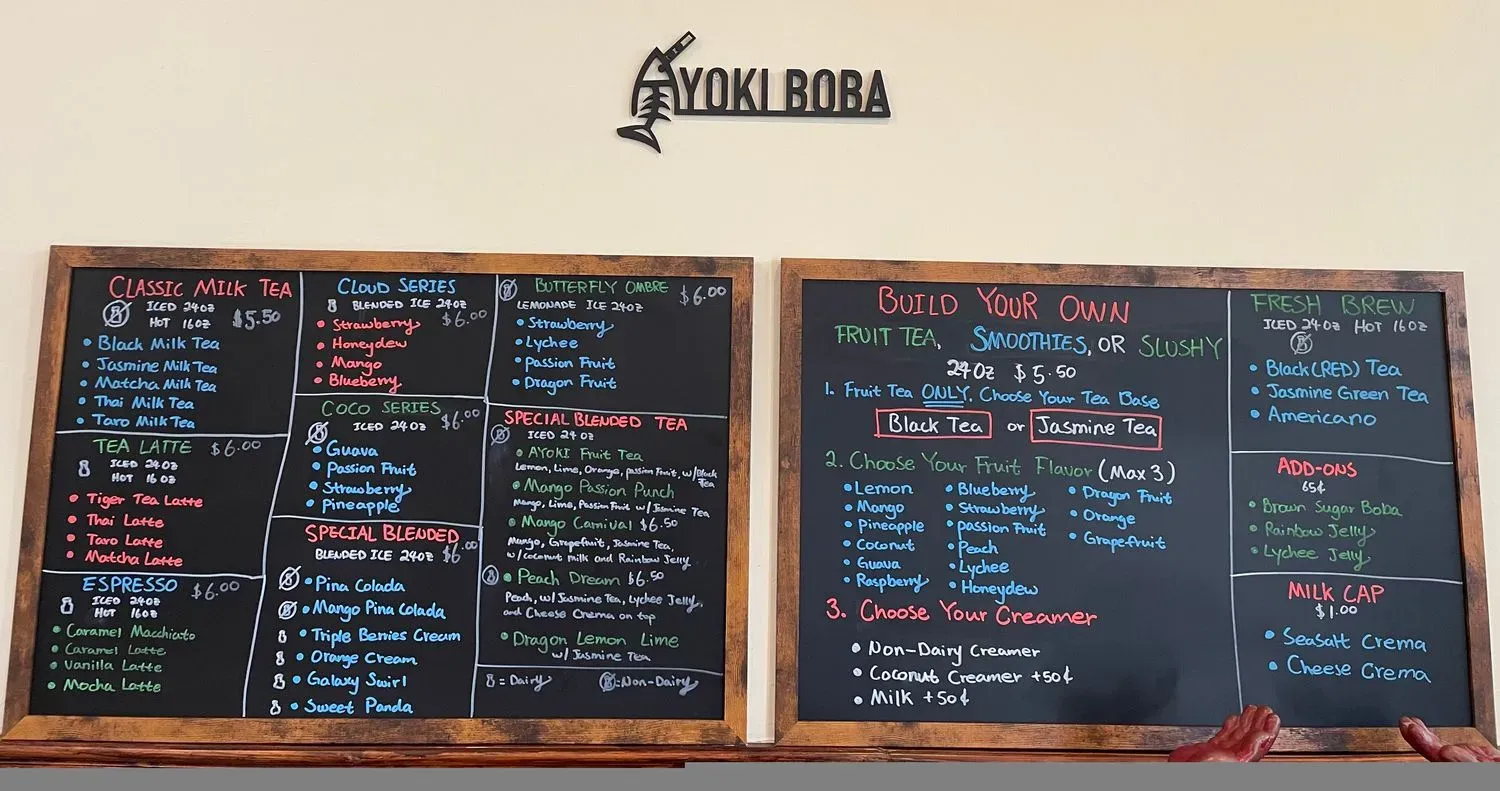 AYOKI BOBA
CLASSIC MILK TEA
ICED 24oz
HOT 16oz
$5.50
Black Milk Tea
Jasmine Milk Tea
Matcha Milk Tea
Thai Milk Tea
Taro Milk Tea
TEA LATTE $6.00
ICED 24oz
HOT 16oz
Tiger Tea Latte
Thai Latte
Taro Latte
Matcha Latte
ESPRESSO $6.00
ICED 24oz
HOT 16oz
Caramel Macchiato
Caramel Latte
Vanilla Latte
Mocha Latte
CLOUD SERIES
BLENDED ICE 24oz
$6.00
Strawberry
Honeydew
Mango
Blueberry
COCO SERIES $6.00
ICED 24oz
Guava
Passion Fruit
Strawberry
Pineapple
SPECIAL BLENDED
BLENDED ICE 24oz $6.00
Pina Colada
Mango Pina Colada
Triple Berries Cream
Orange Cream
Galaxy Swirl
Sweet Panda
BUTTERFLY OMBRE $6.00
LEMONADE ICE 24oz
Strawberry
Lychee
Passion Fruit
Dragon Fruit
SPECIAL BLENDED TEA
ICED 24oz
AYOKI Fruit Tea
Lemon, Lime, Orange, passion Fruit, w/Black
Tea
Mango Passion Punch
Mango, Lime, Passion Fruit w/ Jasmine Tea
Mango Carnival $6.50
Mango, Grapefruit, Jasmine Tea,
w/coconut milk and Rainbow Jelly.
Peach Dream $6.50
Peach, w/ Jasmine Tea, Lychee Jelly,
and Cheese Crema on top
Dragon Lemon Lime
w/ Jasmine Tea
= Dairy
=Non-Dairy
BUILD YOUR OWN
FRUIT TEA, SMOOTHIES, OR SLUSHY
24oz $5.50
1. Fruit Tea ONLY, Choose Your Tea Base
Black Tea or Jasmine Tea
2. Choose Your Fruit Flavor (Max 3)
Lemon
Mango
Pineapple
Coconut
Guava
Raspberry
Blueberry
Strawberry
passion Fruit
Peach
Lychee
Honeydew
Dragon Fruit
Orange
Grapefruit
3. Choose Your Creamer
Non-Dairy Creamer
Coconut Creamer +50¢
Milk +50¢
FRESH BREW
ICED 24oz HOT 16oz
Black(RED) Tea
Jasmine Green Tea
Americano
ADD-ONS
65¢
Brown Sugar Boba
Rainbow Jelly
Lychee Jelly
MILK CAP
$1.00
Seasalt Crema
Cheese Crema